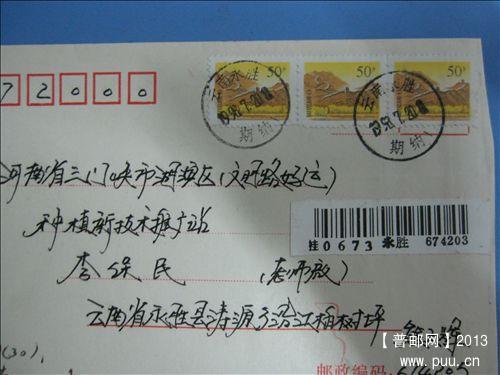 50 50 50
云南永胜
1998.7.20.18
期纳
云南永胜
1998.7.20.18
期纳
72000
河南省三门峡市湖滨区(文明路好运)
种植新技术推广站
李保民 (老师啟)
挂 0673 永胜 674203
云南省永胜县涛源乡沿江柏树坪
(30),
邮政编码:
【普邮网】2013
www.puu.cn